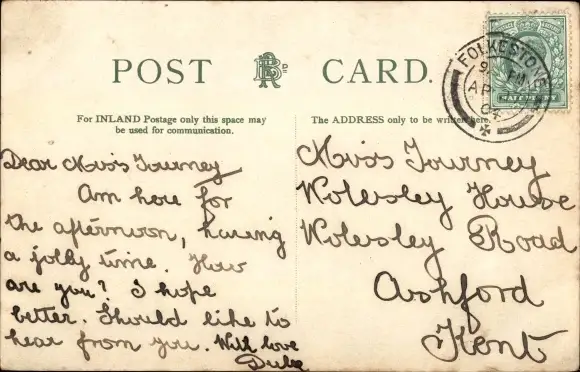 POST CARD.
For INLAND Postage only this space may
be used for communication.
The ADDRESS only to be written here.
FOLKESTONE
9 PM
AP
04
HALFPENNY
Dear Miss Tourney
Am here for
the afternoon, having
a jolly time. How
are you? I hope
better. Should like to
hear from you. With love
Miss Tourney
Wolesley House
Wolesley Road
Ashford
Kent